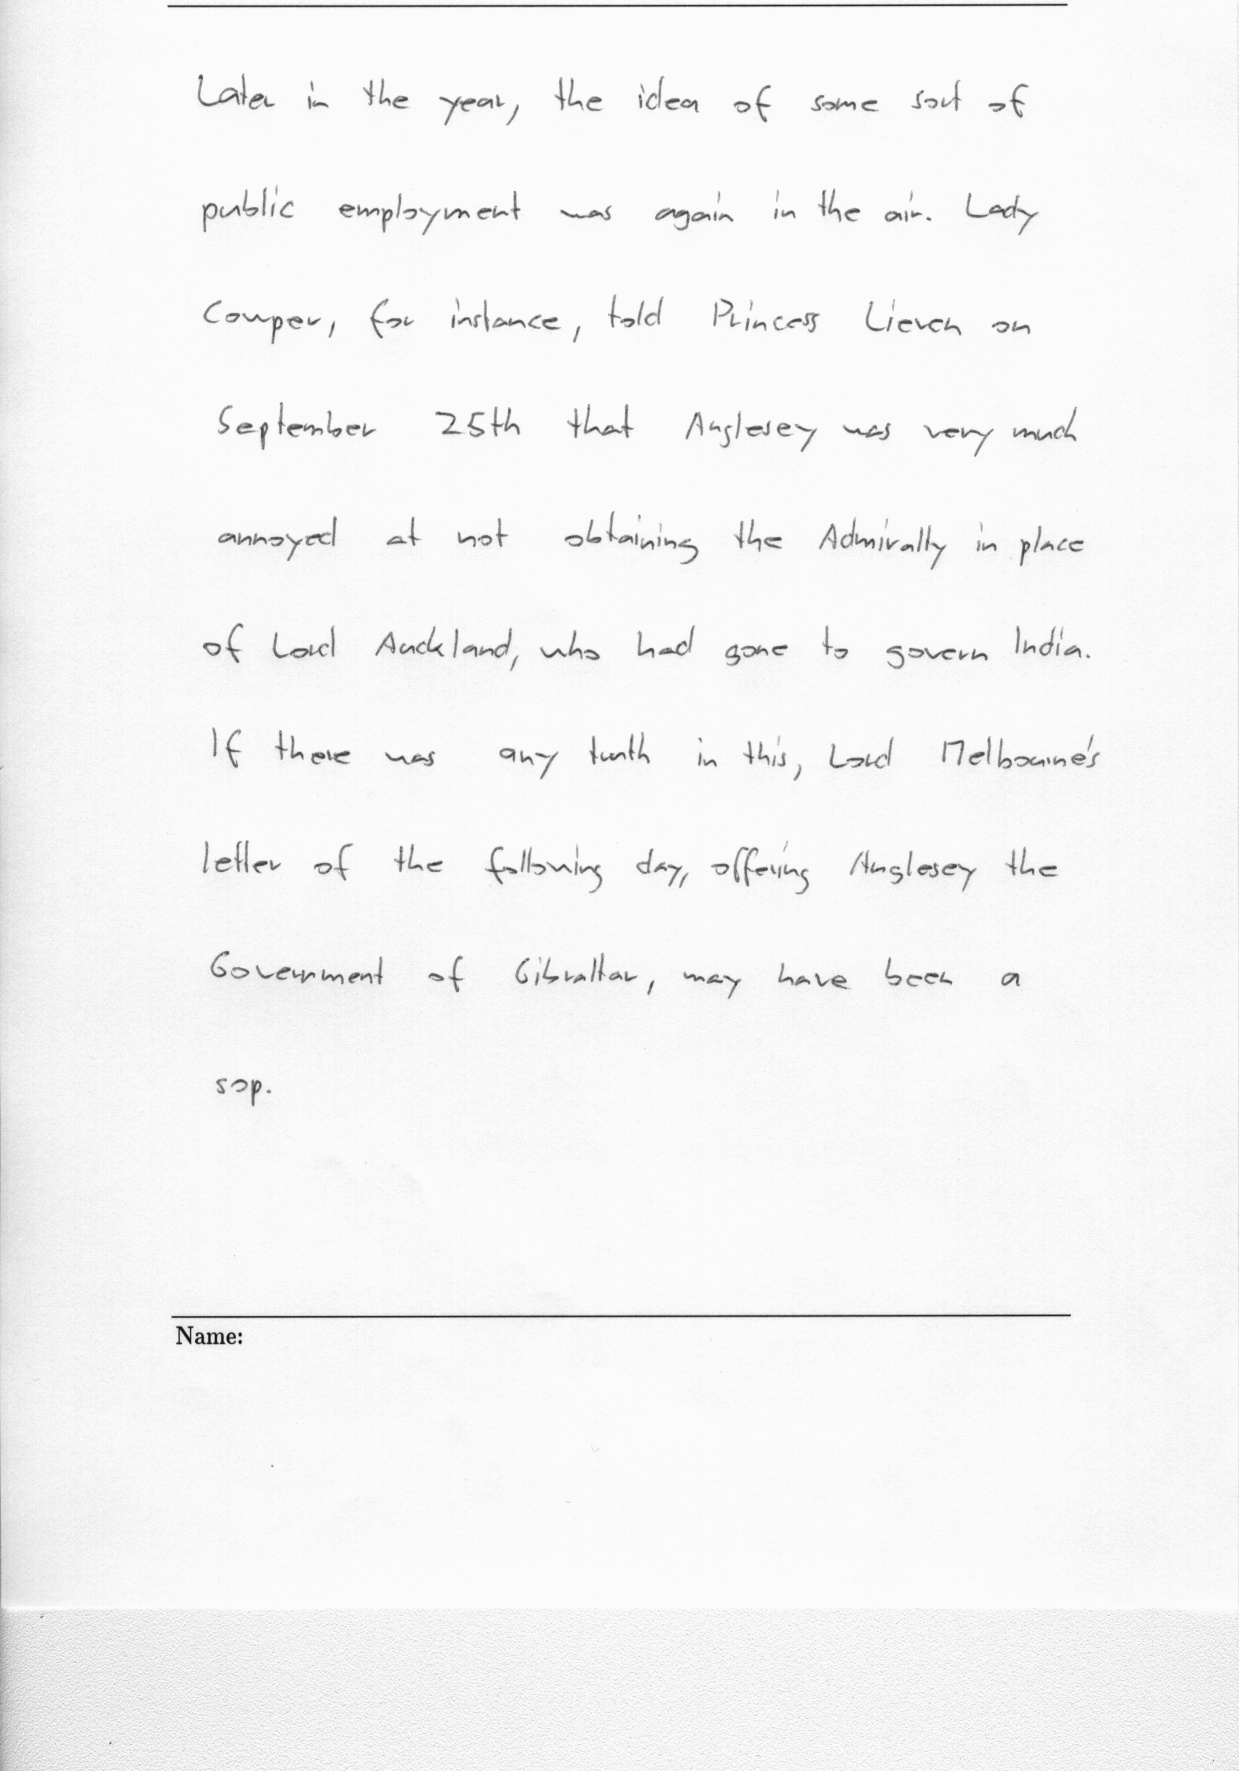 Later in the year, the idea of some sort of
public employment was again in the air. Lady
Cowper, for instance, told Princess Lieven on
September 25th that Anglesey was very much
annoyed at not obtaining the Admirally in place
of Lord Auckland, who had gone to govern India.
If there was any truth in this, Lord Melbourne's
letter of the following day, offering Anglesey the
Government of Gibraltar, may have been a
sop.
Name: